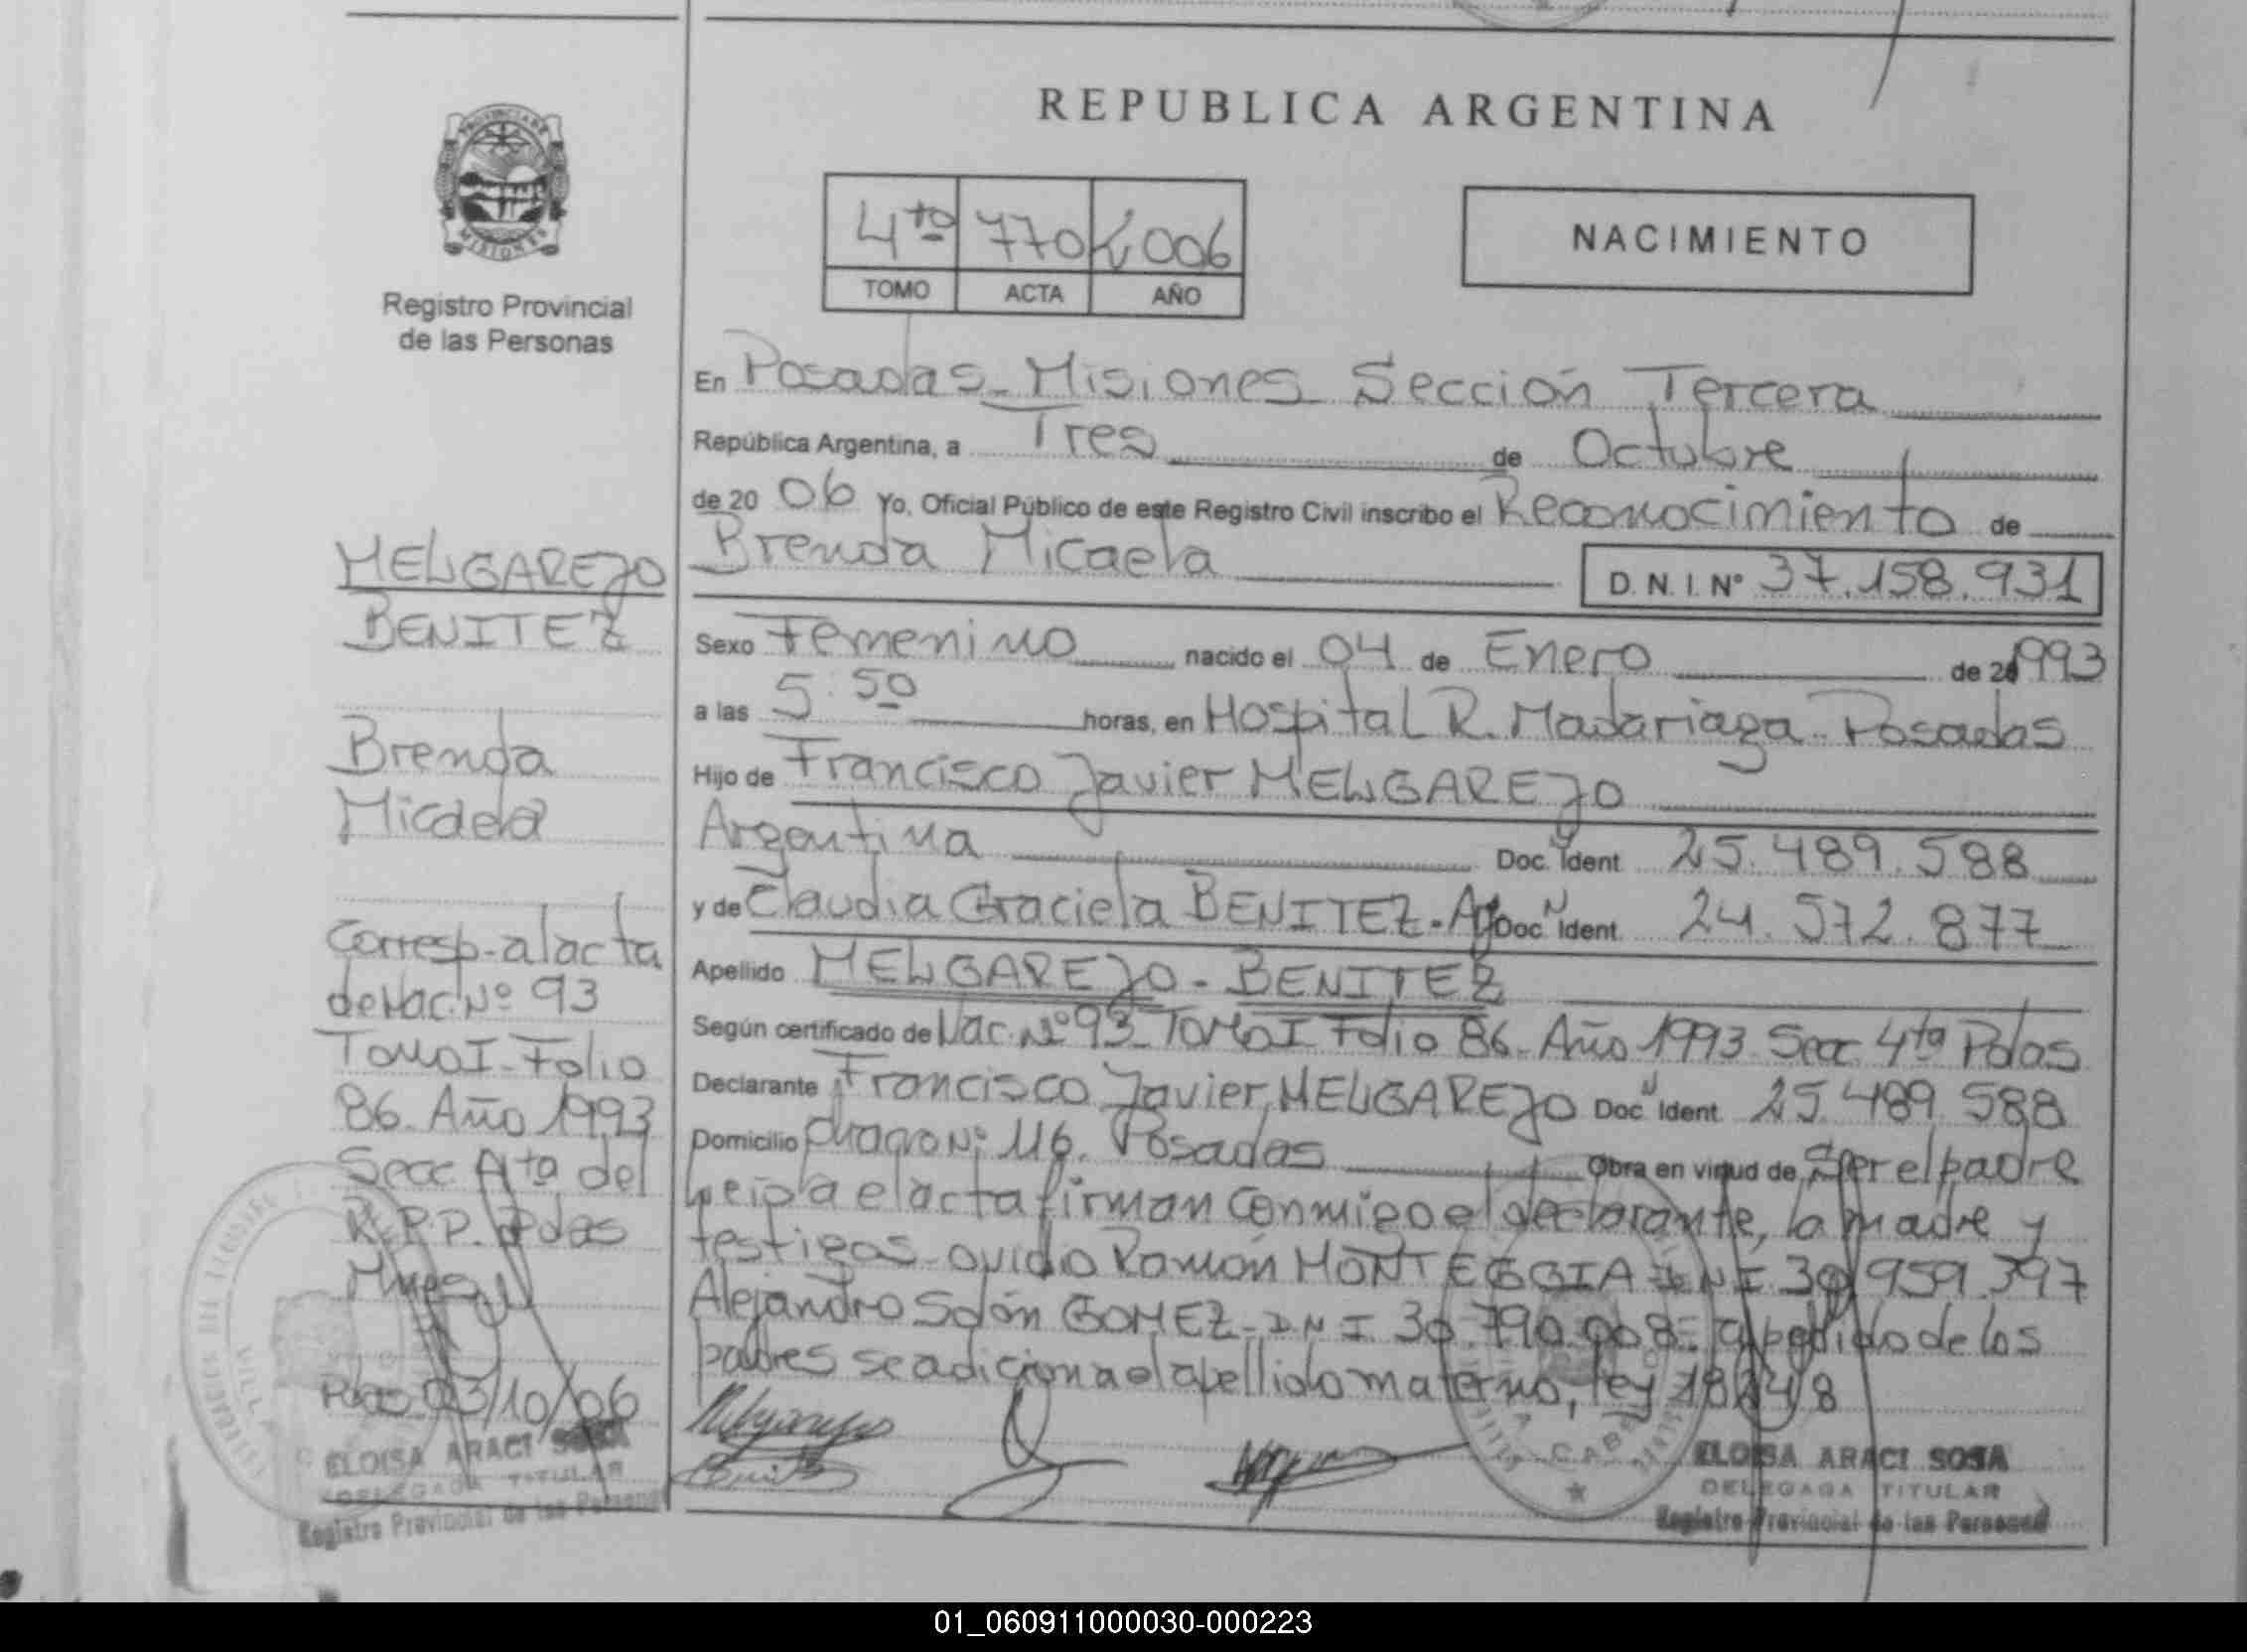 REPUBLICA ARGENTINA
PROVINCIA DE
MISIONES
Registro Provincial
de las Personas
4to 770 2006
TOMO ACTA AÑO
NACIMIENTO
En Posadas - Misiones Sección Tercera
República Argentina, a Tres de Octubre
de 20 06 Yo, Oficial Público de este Registro Civil inscribo el Reconocimiento de
Brenda Micaela D. N. I. Nº 37.158.931
Sexo Femenino nacido el 04 de Enero de 1993
a las 5:50 horas, en Hospital R. Madariaga - Posadas
Hijo de Francisco Javier MELGAREJO
Argentina Doc. Ident. 25.489.588
y de Claudia Graciela BENITEZ - Doc. Ident. 24.572.877
Apellido MELGAREJO - BENITEZ
Según certificado de Nac. Nº 93 - Tomo I Folio 86 - Año 1993 Secc 4ta Pdas
Declarante Francisco Javier MELGAREJO Doc. Ident. 25.489.588
Domicilio Nº 116. Posadas Obra en virtud de Ser el padre
Leida el acta firman conmigo el declarante, la madre y
testigos - Ovidio Ramón MONTEGGIA DNI 30.959.397
Alejandro Solón GOMEZ - DNI 30.790.008 - a pedido de los
padres se adiciona el apellido materno, ley 18248
ELOISA ARACI SOSA
DELEGADA TITULAR
Registro Provincial de las Personas
MELGAREJO
BENITEZ
Brenda
Micaela
Corresp - al acta
de Nac. Nº 93
Tomo I - Folio
86 - Año 1993
Secc 4ta del
R.P.P. Pdas
Mnes
Pdas 03/10/06
ELOISA ARACI SOSA
DELEGADA TITULAR
Registro Provincial de las Personas
01_060911000030-000223